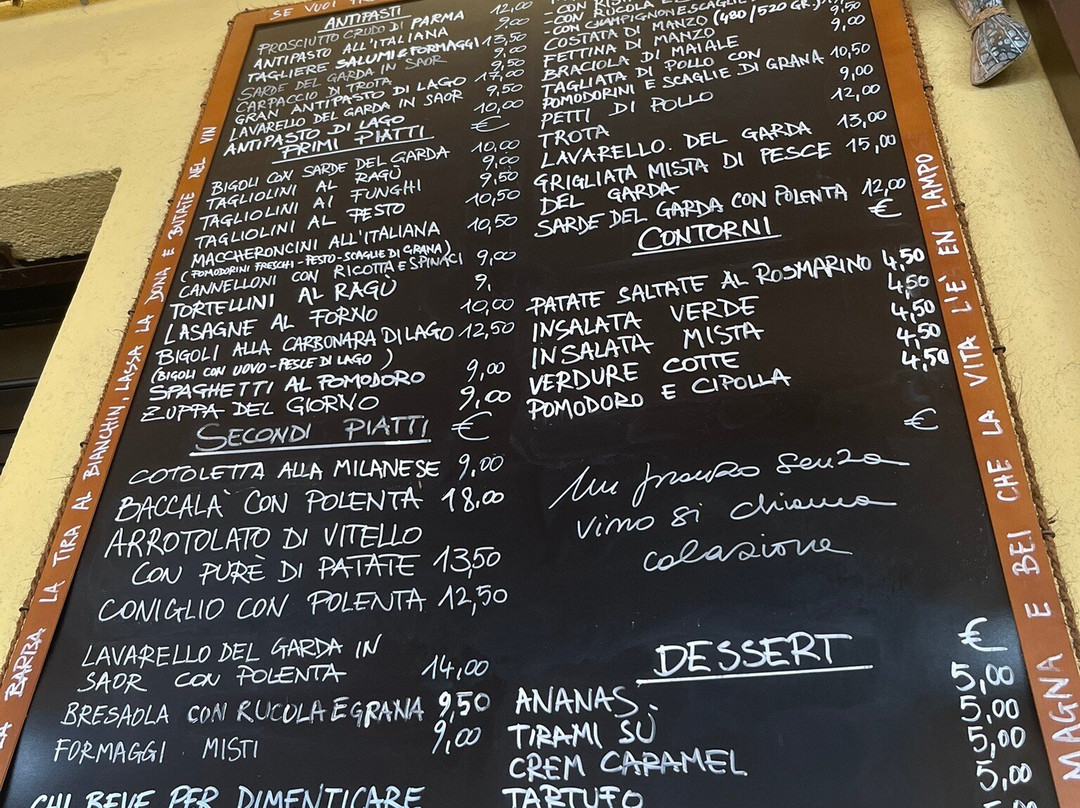 SE VUOI
ANTIPASTI
PROSCIUTTO CRUDO DI PARMA 12,00
ANTIPASTO ALL'ITALIANA 9,00
TAGLIERE SALUMI E FORMAGGI 13,50
SARDE DEL GARDA IN SAOR 9,00
CARPACCIO DI TROTA 9,50
GRAN ANTIPASTO DI LAGO 17,00
LAVARELLO DEL GARDA IN SAOR 9,50
ANTIPASTO DI LAGO 10,00
PRIMI PIATTI €
BIGOLI CON SARDE DEL GARDA 10,00
TAGLIOLINI AL RAGÙ 9,00
TAGLIOLINI AI FUNGHI 9,50
TAGLIOLINI AL PESTO 10,50
MACCHERONCINI ALL'ITALIANA 10,50
(POMODORINI FRESCHI - PESTO - SCAGLIE DI GRANA)
CANNELLONI CON RICOTTA E SPINACI 9,00
TORTELLINI AL RAGÙ 9,
LASAGNE AL FORNO 10,00
BIGOLI ALLA CARBONARA DI LAGO 12,50
(BIGOLI CON UOVO - PESCE DI LAGO)
SPAGHETTI AL POMODORO 9,00
ZUPPA DEL GIORNO 9,00
SECONDI PIATTI €
COTOLETTA ALLA MILANESE 9,00
BACCALÀ CON POLENTA 18,00
ARROTOLATO DI VITELLO
CON PURÈ DI PATATE 13,50
CONIGLIO CON POLENTA 12,50
LAVARELLO DEL GARDA IN
SAOR CON POLENTA 14,00
BRESAOLA CON RUCOLA E GRANA 9,50
FORMAGGI MISTI 9,00
CHI BEVE PER DIMENTICARE
-CON RUCOLA E
-CON CHAMPIGNON E SCAGLIE
COSTATA DI MANZO (480/520 GR.)
FETTINA DI MANZO 9,50
BRACIOLA DI MAIALE 9,00
TAGLIATA DI POLLO CON
POMODORINI E SCAGLIE DI GRANA 10,50
PETTI DI POLLO 9,00
TROTA 12,00
LAVARELLO DEL GARDA 13,00
GRIGLIATA MISTA DI PESCE 15,00
DEL GARDA
SARDE DEL GARDA CON POLENTA 12,00
CONTORNI €
PATATE SALTATE AL ROSMARINO 4,50
INSALATA VERDE 4,50
INSALATA MISTA 4,50
VERDURE COTTE 4,50
POMODORO E CIPOLLA 4,50
€
Un pranzo senza
vino si chiama
colazione
DESSERT €
ANANAS 5,00
TIRAMI SÙ 5,00
CREM CARAMEL 5,00
TARTUFO 5,00
LA BARBA LA TIRA AL BIANCHIN, LASSA LA DONA E BUTATE NEL VIN
MAGNA E BEI CHE LA VITA L'È EN LAMPO